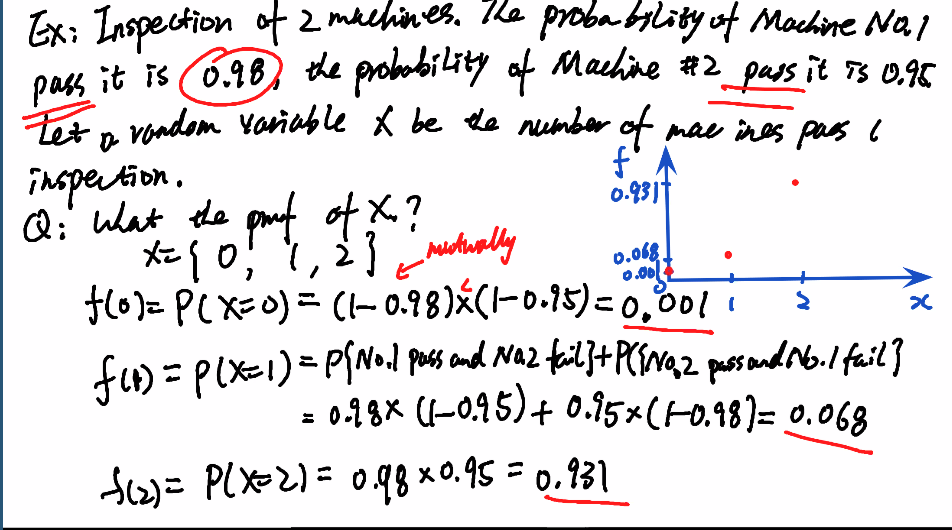 Ex: Inspection of 2 machines. The probability of Machine No.1
pass it is 0.98, the probability of Machine #2 pass it is 0.95
Let a random variable X be the number of mac ines pass
inspection.
Q: What the pmf of X.?
X={ 0, 1, 2 }
mutually
f(0)= P( X=0) = (1-0.98)x(1-0.95)=0.001
f(1) = P(X=1) = P{No.1 pass and No.2 fail}+P({No.2 pass and No.1 fail}
= 0.98x (1-0.95) + 0.95x(1-0.98)= 0.068
f(2)= P(X=2) = 0.98x0.95 = 0.931
f
0.931
0.068
0.001
0 1 2 x